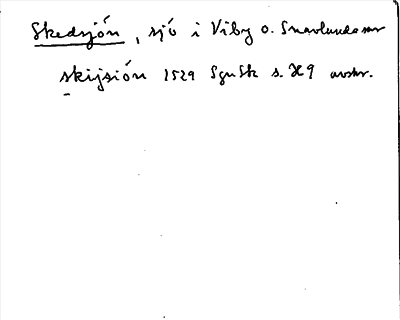 Skedsjön, sjö i Viby o. Snavlunda snr
skijsión 1529 SguSk s. 29 avskr.